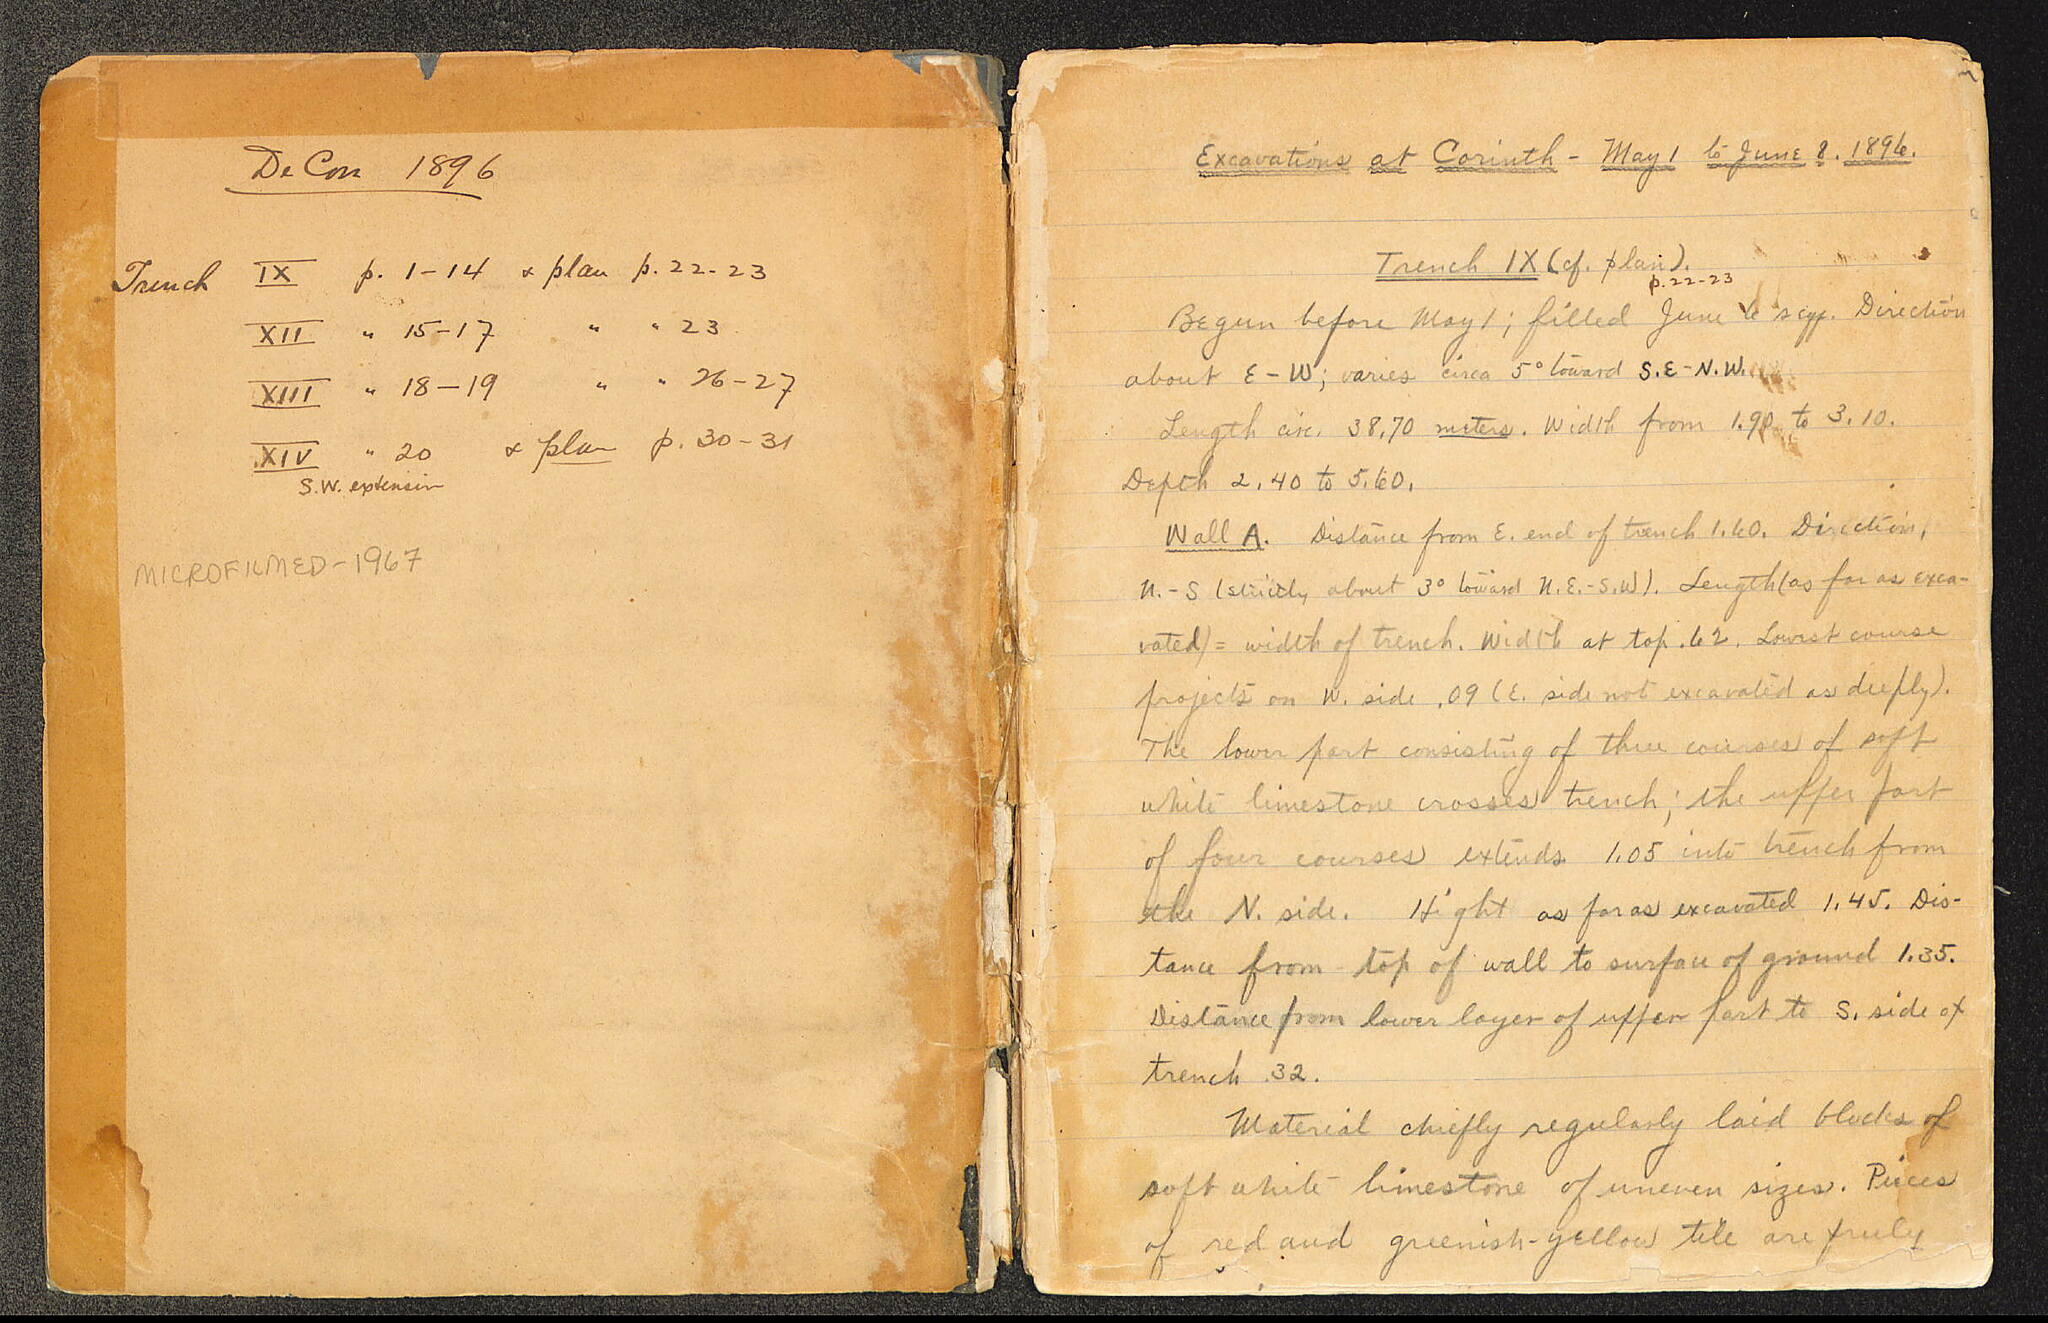 De Cou 1896
Trench IX p. 1-14 & plan p. 22-23
XII " 15-17 " " 23
XIII " 18-19 " " 26-27
XIV " 20 & plan p. 30-31
S.W. extension
MICROFILMED-1967
Excavations at Corinth - May 1 to June 8. 1896.
Trench IX (cf. plan).
p. 22-23
Begun before May 1; filled June 6 sqq. Direction
about E-W; varies circa 5° toward S.E-N.W.
Length circ. 38,70 meters. Width from 1.90 to 3.10.
Depth 2.40 to 5.60.
Wall A. Distance from E. end of trench 1.60. Direction,
N.-S (strictly about 3° toward N.E.-S.W). Length (as far as exca-
vated) = width of trench. Width at top .62. Lowest course
projects on W. side .09 (E. side not excavated as deeply).
The lower part consisting of three courses of soft
white limestone crosses trench; the upper part
of four courses extends 1.05 into trench from
the N. side. Hight as far as excavated 1.45. Dis-
tance from top of wall to surface of ground 1.35.
Distance from lower layer of upper part to S. side of
trench .32.
Material chiefly regularly laid blocks of
soft white limestone of uneven sizes. Pieces
of red and greenish-yellow tile are freely